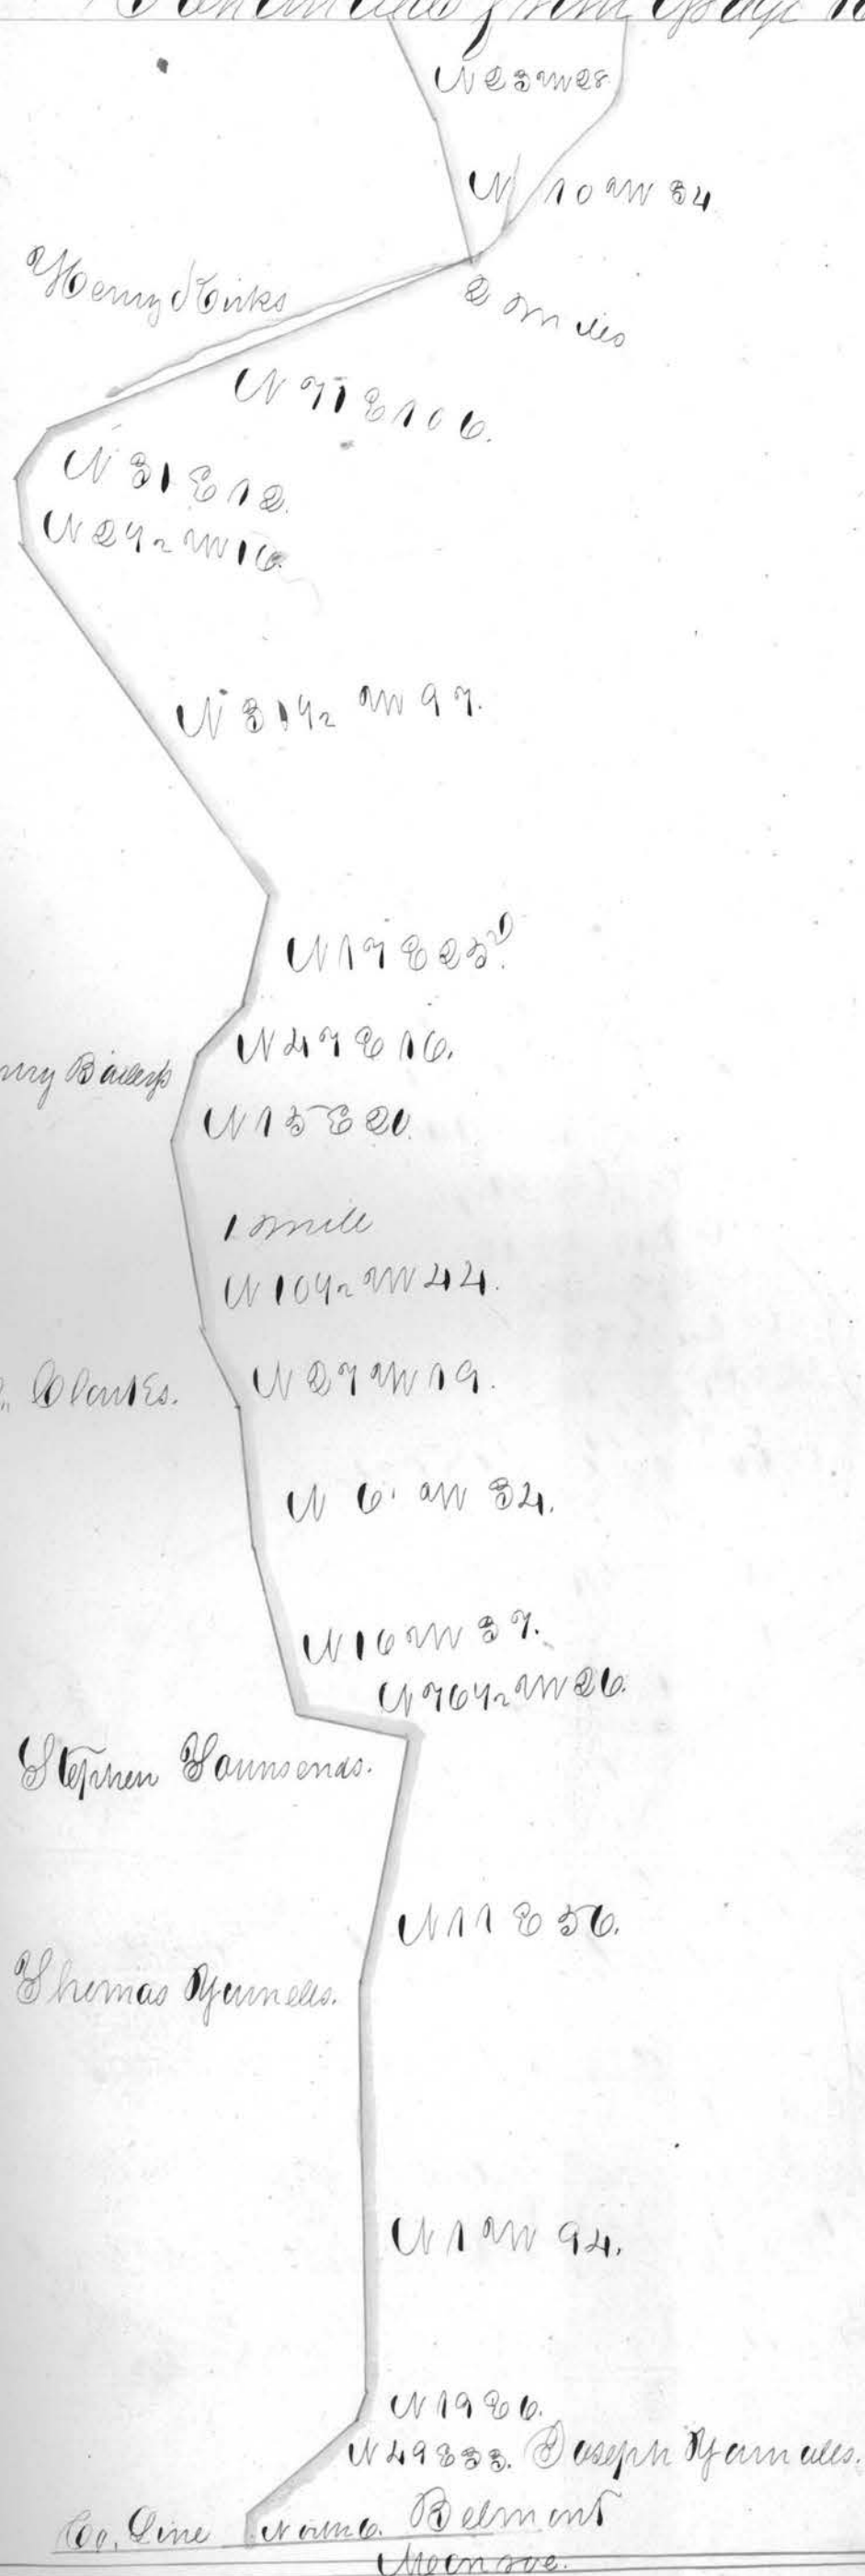 from Page
N 23 W 28
N 10 W 34
2 Miles
N 71 E 106.
N 31 E 12.
N 2 1/2 W 16.
N 31 1/2 W 97.
N 17 E 25
N 47 E 16.
Baileys
N 15 E 20.
1 Mile
N 10 1/2 W 44.
N 27 W 19.
Clarks.
N 6. W 34.
N 16 W 37.
N 76 1/2 W 26.
Stephen Tounsends.
N 11 E 56.
Thomas Yarnells.
N 1 W 94.
N 19 E 6.
N 49 E 33. Joseph Yarnalls.
Co. Line Belmont
Monroe.